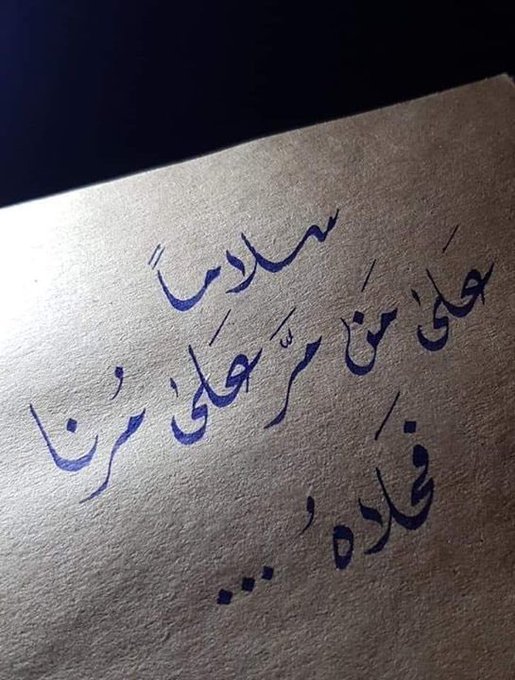 سلاماً
عَلىٰ مَن مرَّ عَلىٰ مُرنا
فَحَلاهُ ...